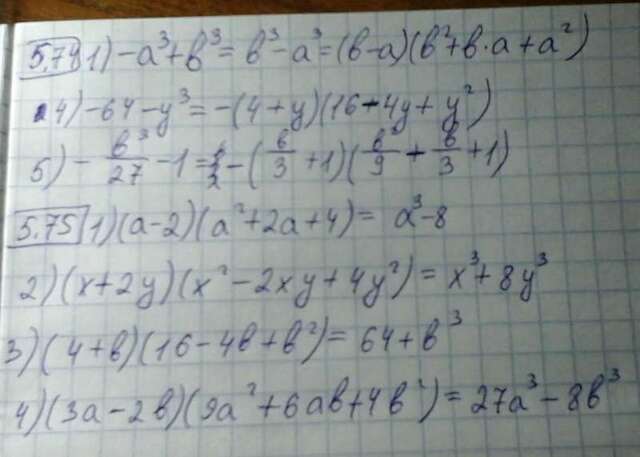 5.74 1) -a³+b³= b³-a³=(b-a)(b²+b·a+a²)
4)-64-y³=-(4+y)(16-4y+y²)
5) -b³/27 -1= -(b/3 +1)(b/9 + b/3 +1)
5.75 1)(a-2)(a²+2a+4)= a³-8
2)(x+2y)(x²-2xy+4y²)=x³+8y³
3)(4+b)(16-4b+b²)=64+b³
4)(3a-2b)(9a²+6ab+4b²)=27a³-8b³